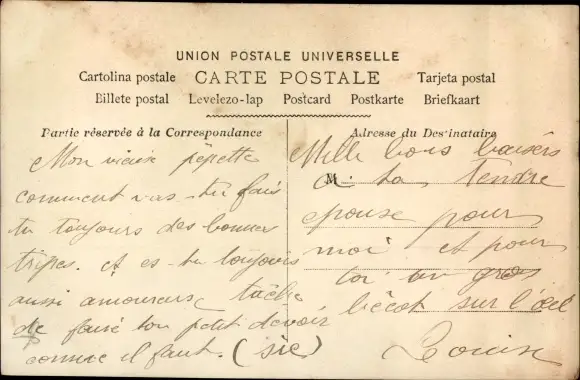 UNION POSTALE UNIVERSELLE
Cartolina postale CARTE POSTALE Tarjeta postal
Billete postal Levelezo-lap Postcard Postkarte Briefkaart
Partie réservée à la Correspondance
Mon vieux pépette
comment vas-tu fais
tu toujours des bonnes
tripes. et es-tu toujours
aussi amoureux tâche
de faire ton petit devoir
comme il faut. (sic)
Adresse du Destinataire
Mille bons baisers
M
a ta tendre
epouse pour
moi et pour
toi un gros
bécot sur l'œil
Louise